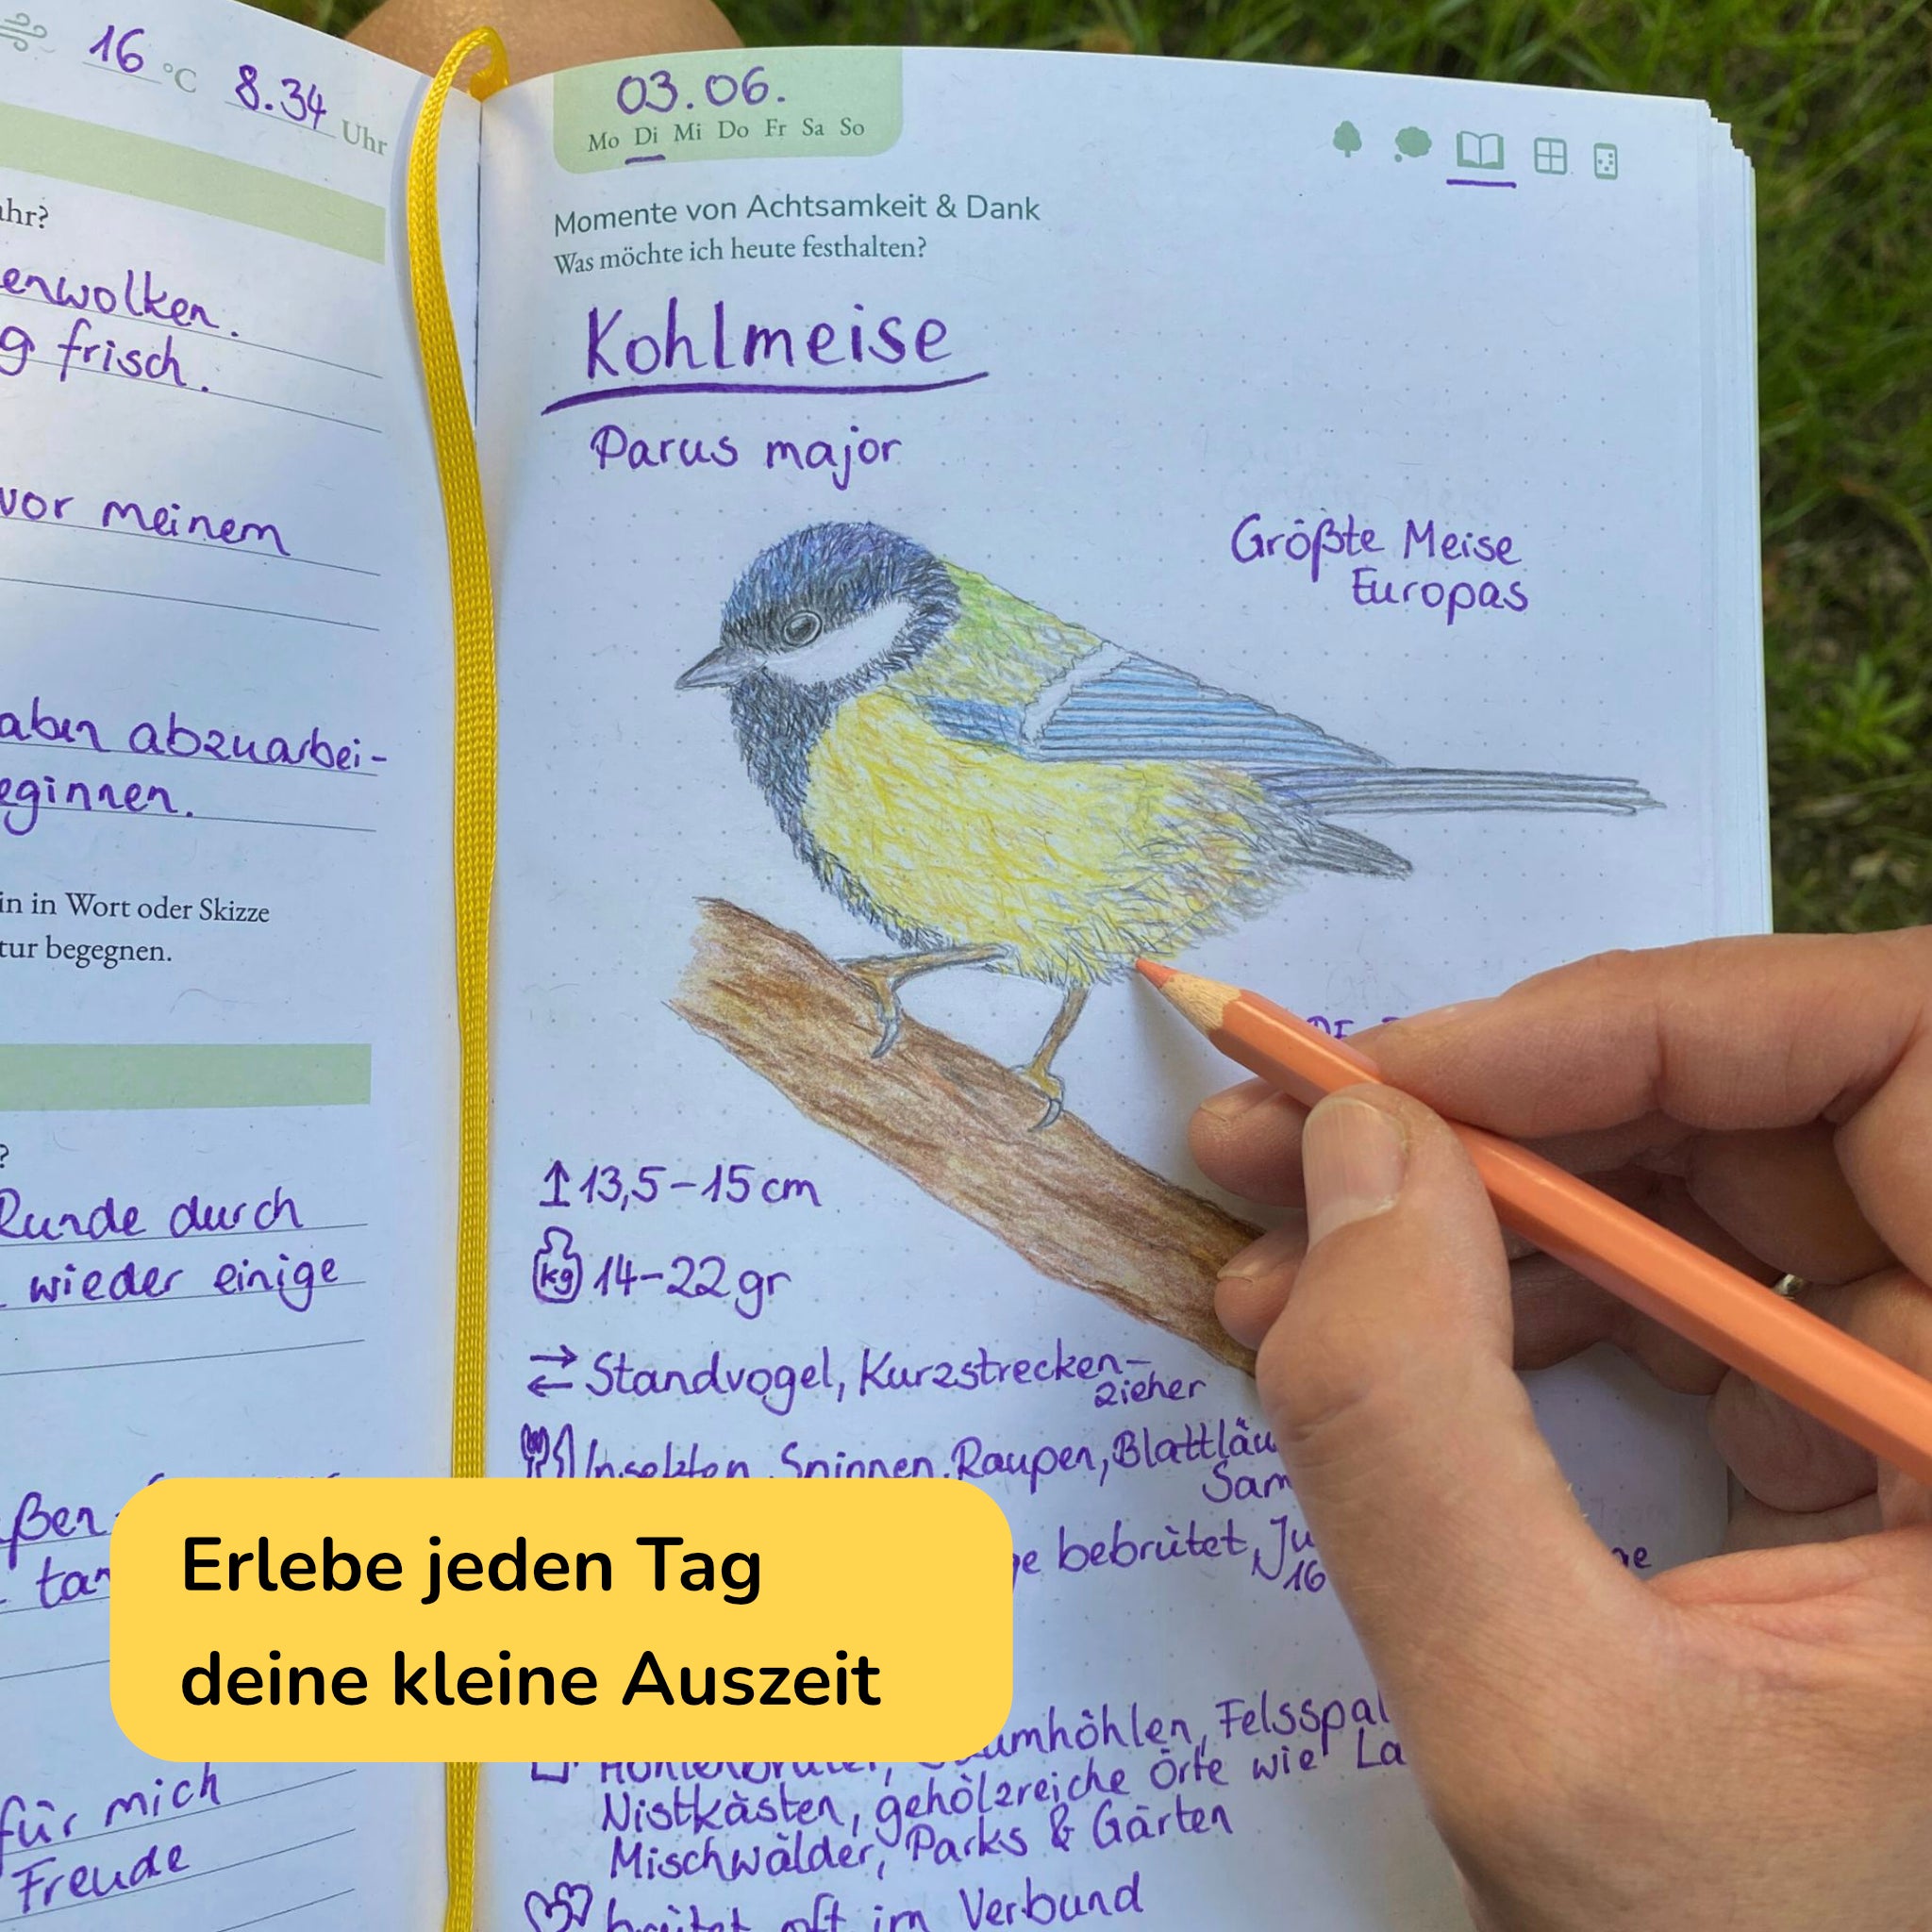 16 °C 8.34 Uhr
ahr?
enwolken.
g frisch.
vor meinem
abzuarbei-
eginnen.
in in Wort oder Skizze
tur begegnen.
?
Runde durch
wieder einige
ßen
für mich
Freude
03.06.
Mo Di Mi Do Fr Sa So
Momente von Achtsamkeit & Dank
Was möchte ich heute festhalten?
Kohlmeise
Parus major
Größte Meise
Europas
13,5-15 cm
kg 14-22 gr
Standvogel, Kurzstrecken-
zieher
Insekten, Spinnen, Raupen, Blattläu
Sam
ge bebrütet, Ju
16
Erlebe jeden Tag
deine kleine Auszeit
Höhlenbrüter, Baumhöhlen, Felsspal
Nistkästen, gehölzreiche Orte wie La
Mischwälder, Parks & Gärten
brütet oft im Verbund